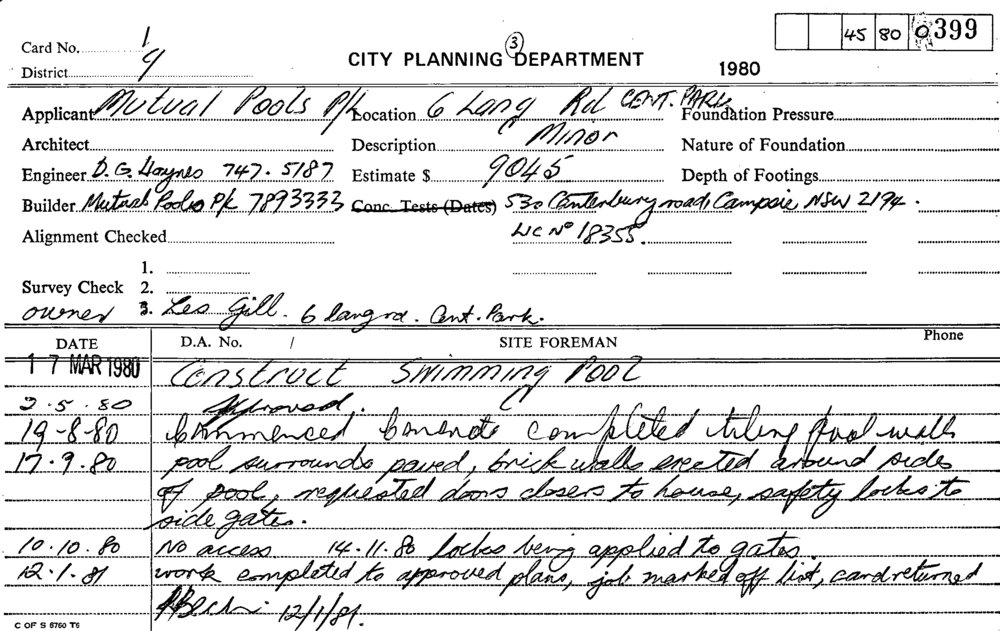 45 80 0399
Card No. 1
③
CITY PLANNING DEPARTMENT
District 9
1980
Applicant Mutual Pools P/L Location 6 Lang Rd CENT. PARK Foundation Pressure
Architect Description Minor Nature of Foundation
Engineer D.G. Haynes 747.5187 Estimate $ 9045 Depth of Footings
Builder Mutual Pools P/L 7893333 Conc. Tests (Dates) 530 Canterbury road, Campsie, NSW 2194.
Alignment Checked LIC No 18355.
1.
Survey Check 2.
owner 3. Les Gill. 6 Lang rd. Cent. Park.
DATE D.A. No. / SITE FOREMAN Phone
17 MAR 1980 Construct Swimming Pool
2.5.80 Approved.
19-8-80 Commenced Concrete completed tiling pool walls
17.9.80 pool surrounds paved, brick walls erected around sides
of pool, requested doors closers to house, safety locks to
side gates.
10.10.80 No access 14.11.80 locks being applied to gates.
12.1.81 work completed to approved plans, job marked off list, card returned
12/1/81.
C OF S 8760 T6